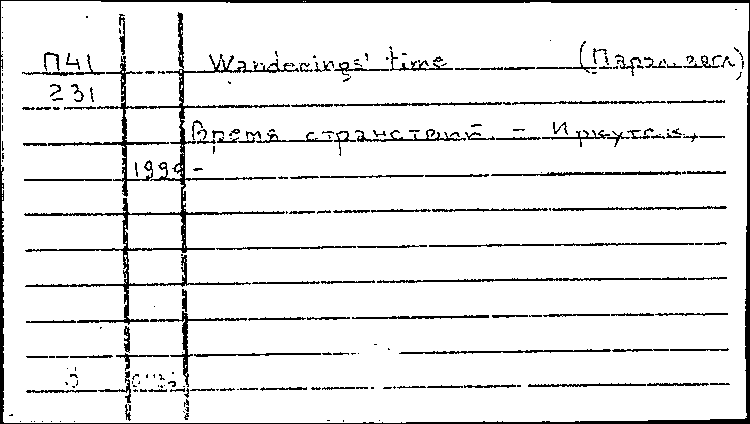 П41 Wanderings' time (Парал. загл)
231
Время странствий. - Иркутск,
1999-